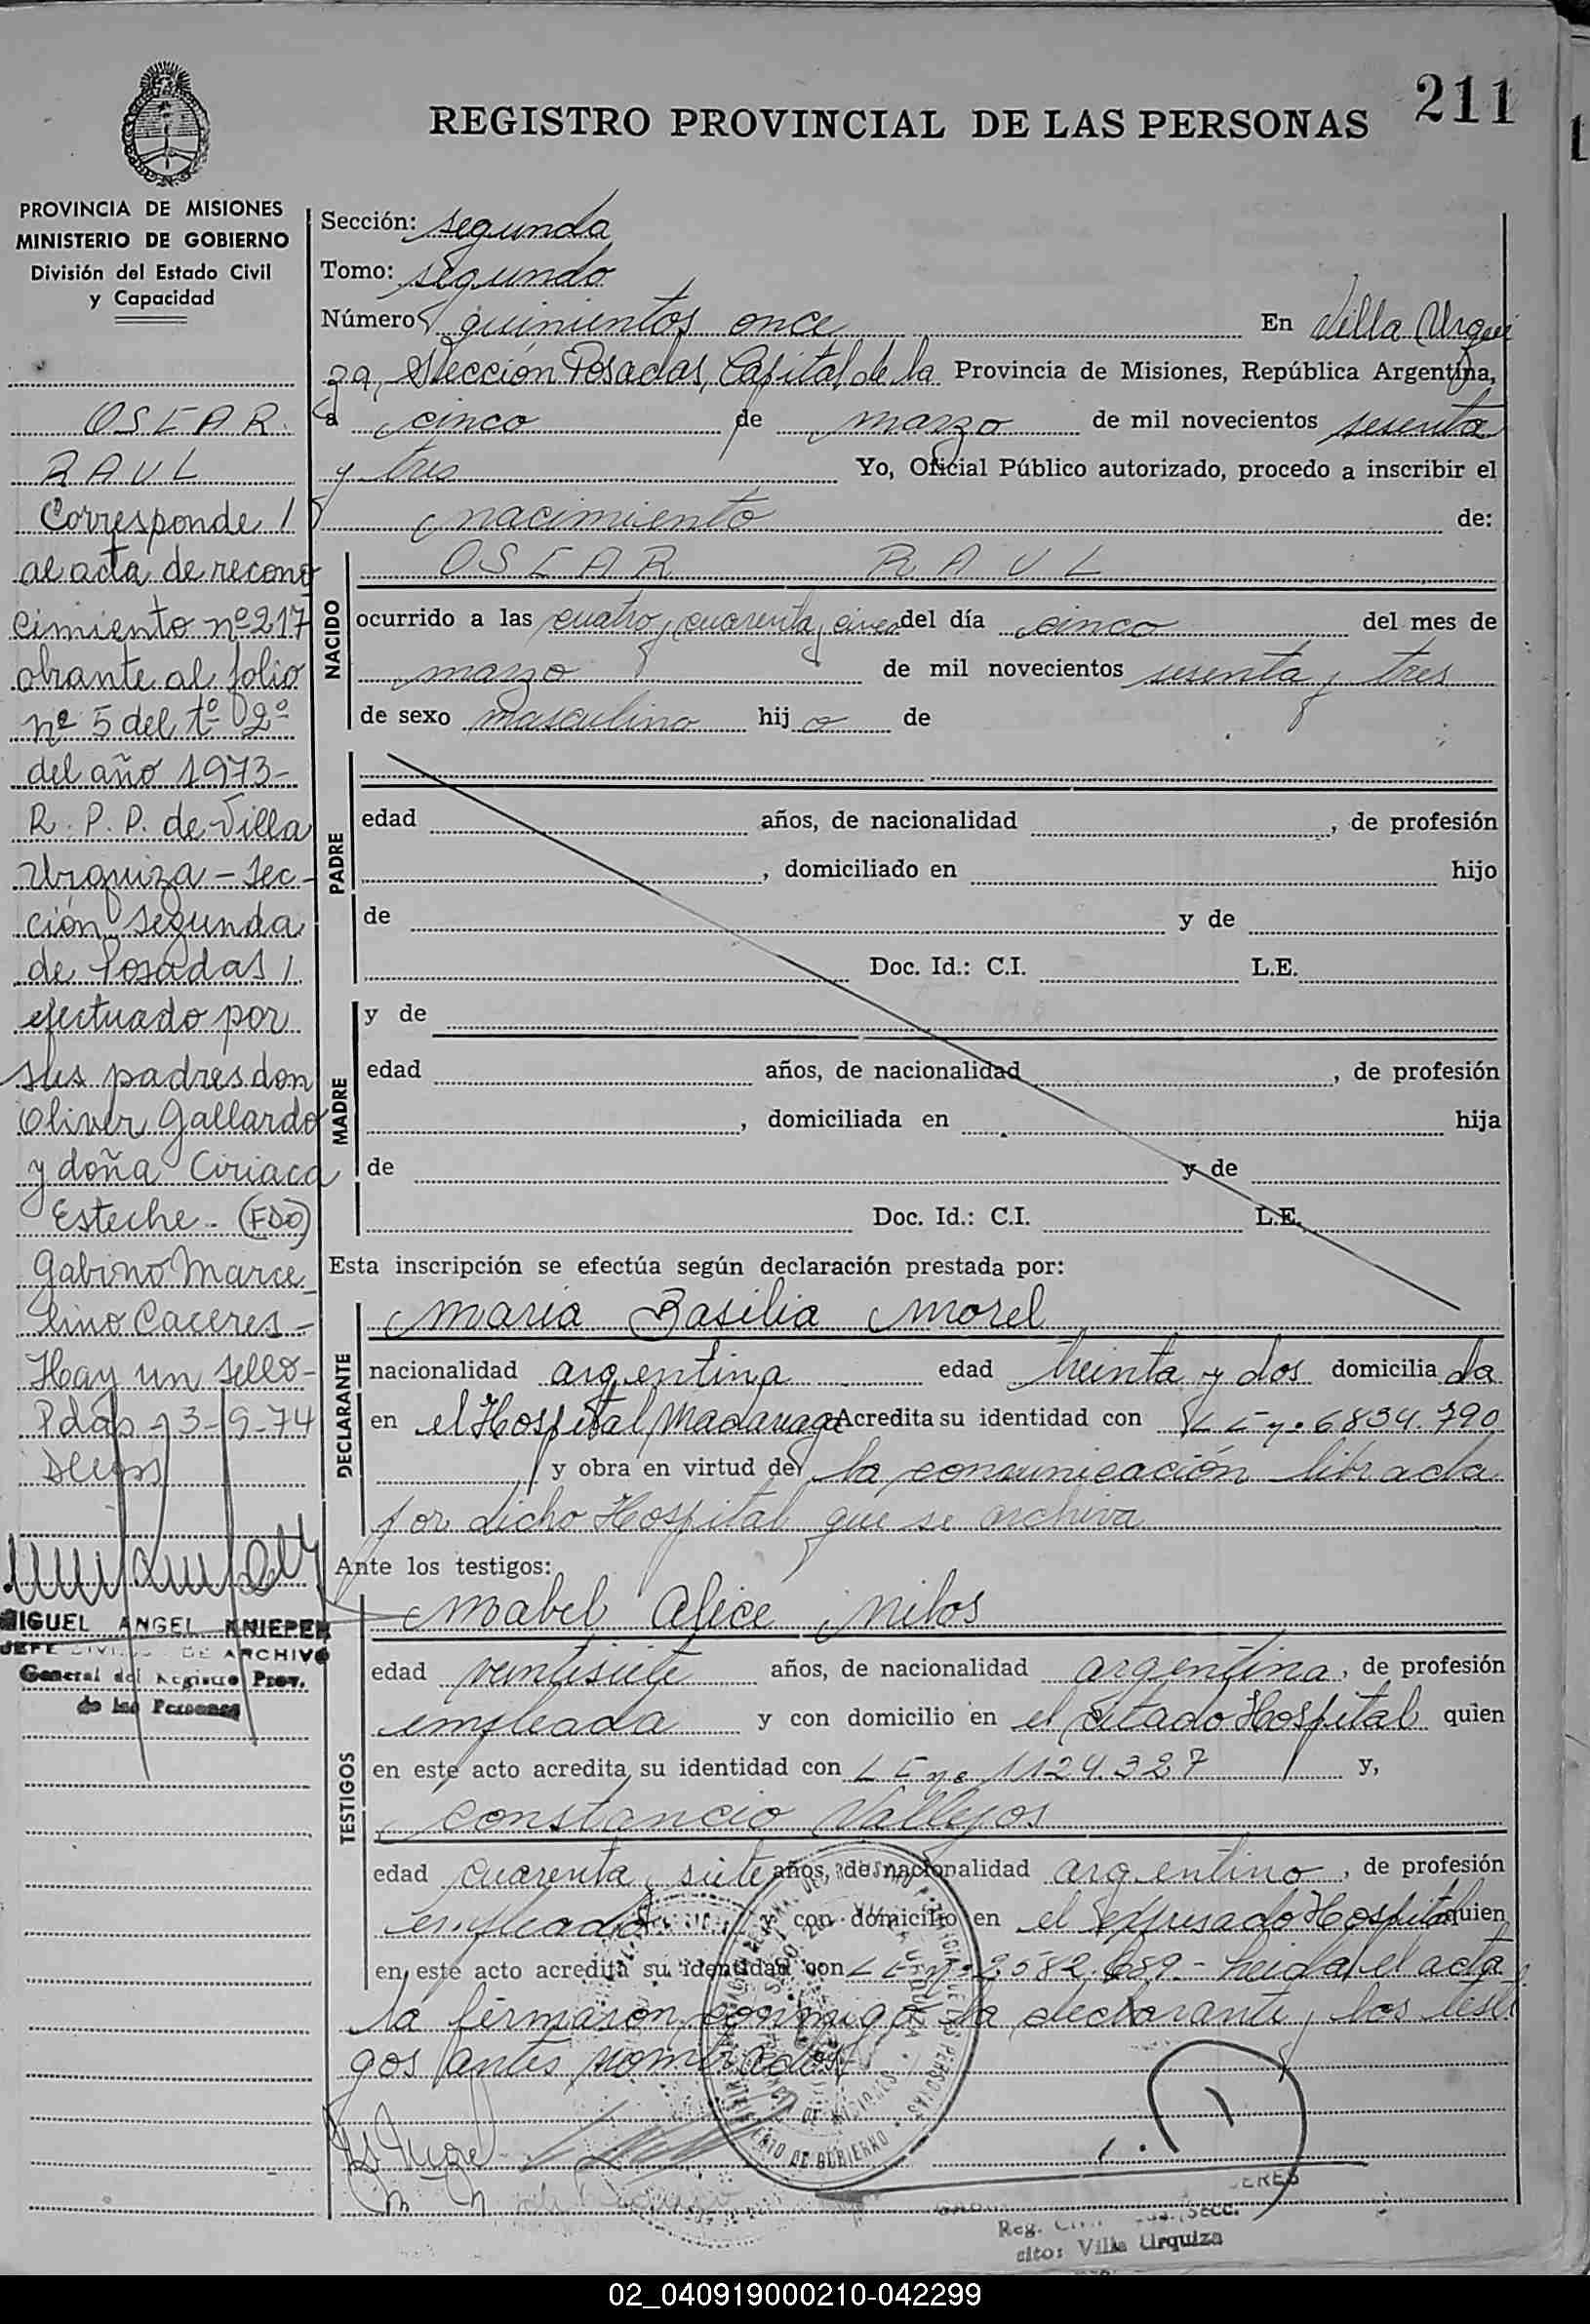 211
REGISTRO PROVINCIAL DE LAS PERSONAS
PROVINCIA DE MISIONES
MINISTERIO DE GOBIERNO
División del Estado Civil
y Capacidad
OSCAR
RAUL
Corresponde /
al acta de recono
cimiento nº 217
obrante al folio
nº 5 del tº 2º
del año 1973-
R. P. P. de Villa
Urquiza - Sec-
ción segunda
de Posadas /
efectuado por
sus padres don
Oliver Gallardo
y doña Ciriaca
Esteche. (FDO)
Gabino Marce_
lino Caceres -
Hay un sello-
Pdas - 3-9-74
MIGUEL ANGEL KNIEPER
JEFE DE ARCHIVO
General del Registro Prov.
de las Personas
Sección: segunda
Tomo: segundo
Número quinientos once En Villa Urqui
za, Sección Posadas, Capital de la Provincia de Misiones, República Argentina,
a cinco de marzo de mil novecientos sesenta
y tres Yo, Oficial Público autorizado, procedo a inscribir el
nacimiento de:
NACIDO
OSCAR RAUL
ocurrido a las cuatro y cuarenta y cinco del día cinco del mes de
marzo de mil novecientos sesenta y tres
de sexo masculino hijo de
PADRE
edad años, de nacionalidad , de profesión
, domiciliado en hijo
de y de
Doc. Id.: C.I. L.E.
MADRE
y de
edad años, de nacionalidad , de profesión
, domiciliada en hija
de y de
Doc. Id.: C.I. L.E.
Esta inscripción se efectúa según declaración prestada por:
DECLARANTE
Maria Basilia Morel
nacionalidad argentina edad treinta y dos domiciliada
en el Hospital Madariaga Acredita su identidad con L C nº 6834.790
y obra en virtud de la comunicación librada
por dicho Hospital que se archiva
Ante los testigos:
TESTIGOS
Mabel Alice Milos
edad veintisiete años, de nacionalidad argentina, de profesión
empleada y con domicilio en el citado Hospital quien
en este acto acredita su identidad con L C nº 1124.327 y,
Constancio Vallejos
edad cuarenta y siete años, de nacionalidad argentino, de profesión
empleado y con domicilio en el expresado Hospital quien
en este acto acredita su identidad con L E nº 2582.689.- Leida el acta
la firmaron conmigo la declarante y los testi
gos antes nombrados
Reg. Secc.
sito: Villa Urquiza
02_040919000210-042299